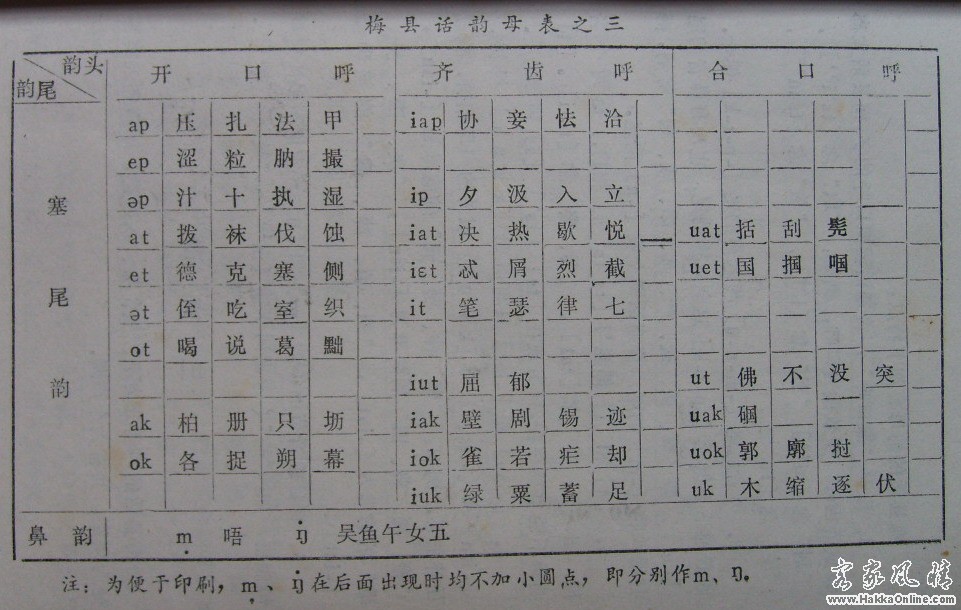 梅县话韵母表之三
韵头 开口呼 齐齿呼 合口呼
韵尾
塞尾韵
ap 压 扎 法 甲 iap 协 妾 怯 洽
ep 涩 粒 肭 撮
əp 汁 十 执 湿 ip 夕 汲 入 立
at 拨 袜 伐 蚀 iat 决 热 歇 悦 uat 括 刮 髡
et 德 克 塞 侧 iεt 忒 屑 烈 截 uet 国 掴 啯
ət 侄 吃 室 织 it 笔 瑟 律 七
ot 喝 说 葛 黜
iut 屈 郁 ut 佛 不 没 突
ak 柏 册 只 坜 iak 壁 剧 锡 迹 uak 砸
ok 各 捉 朔 幕 iok 雀 若 疟 却 uok 郭 廓 挝
iuk 绿 粟 蓄 足 uk 木 缩 逐 伏
鼻韵 ṃ 唔 ŋ̇ 吴鱼午女五
注：为便于印刷，ṃ、ŋ̇在后面出现时均不加小圆点，即分别作m、ŋ。
客家风情
www.HakkaOnline.com